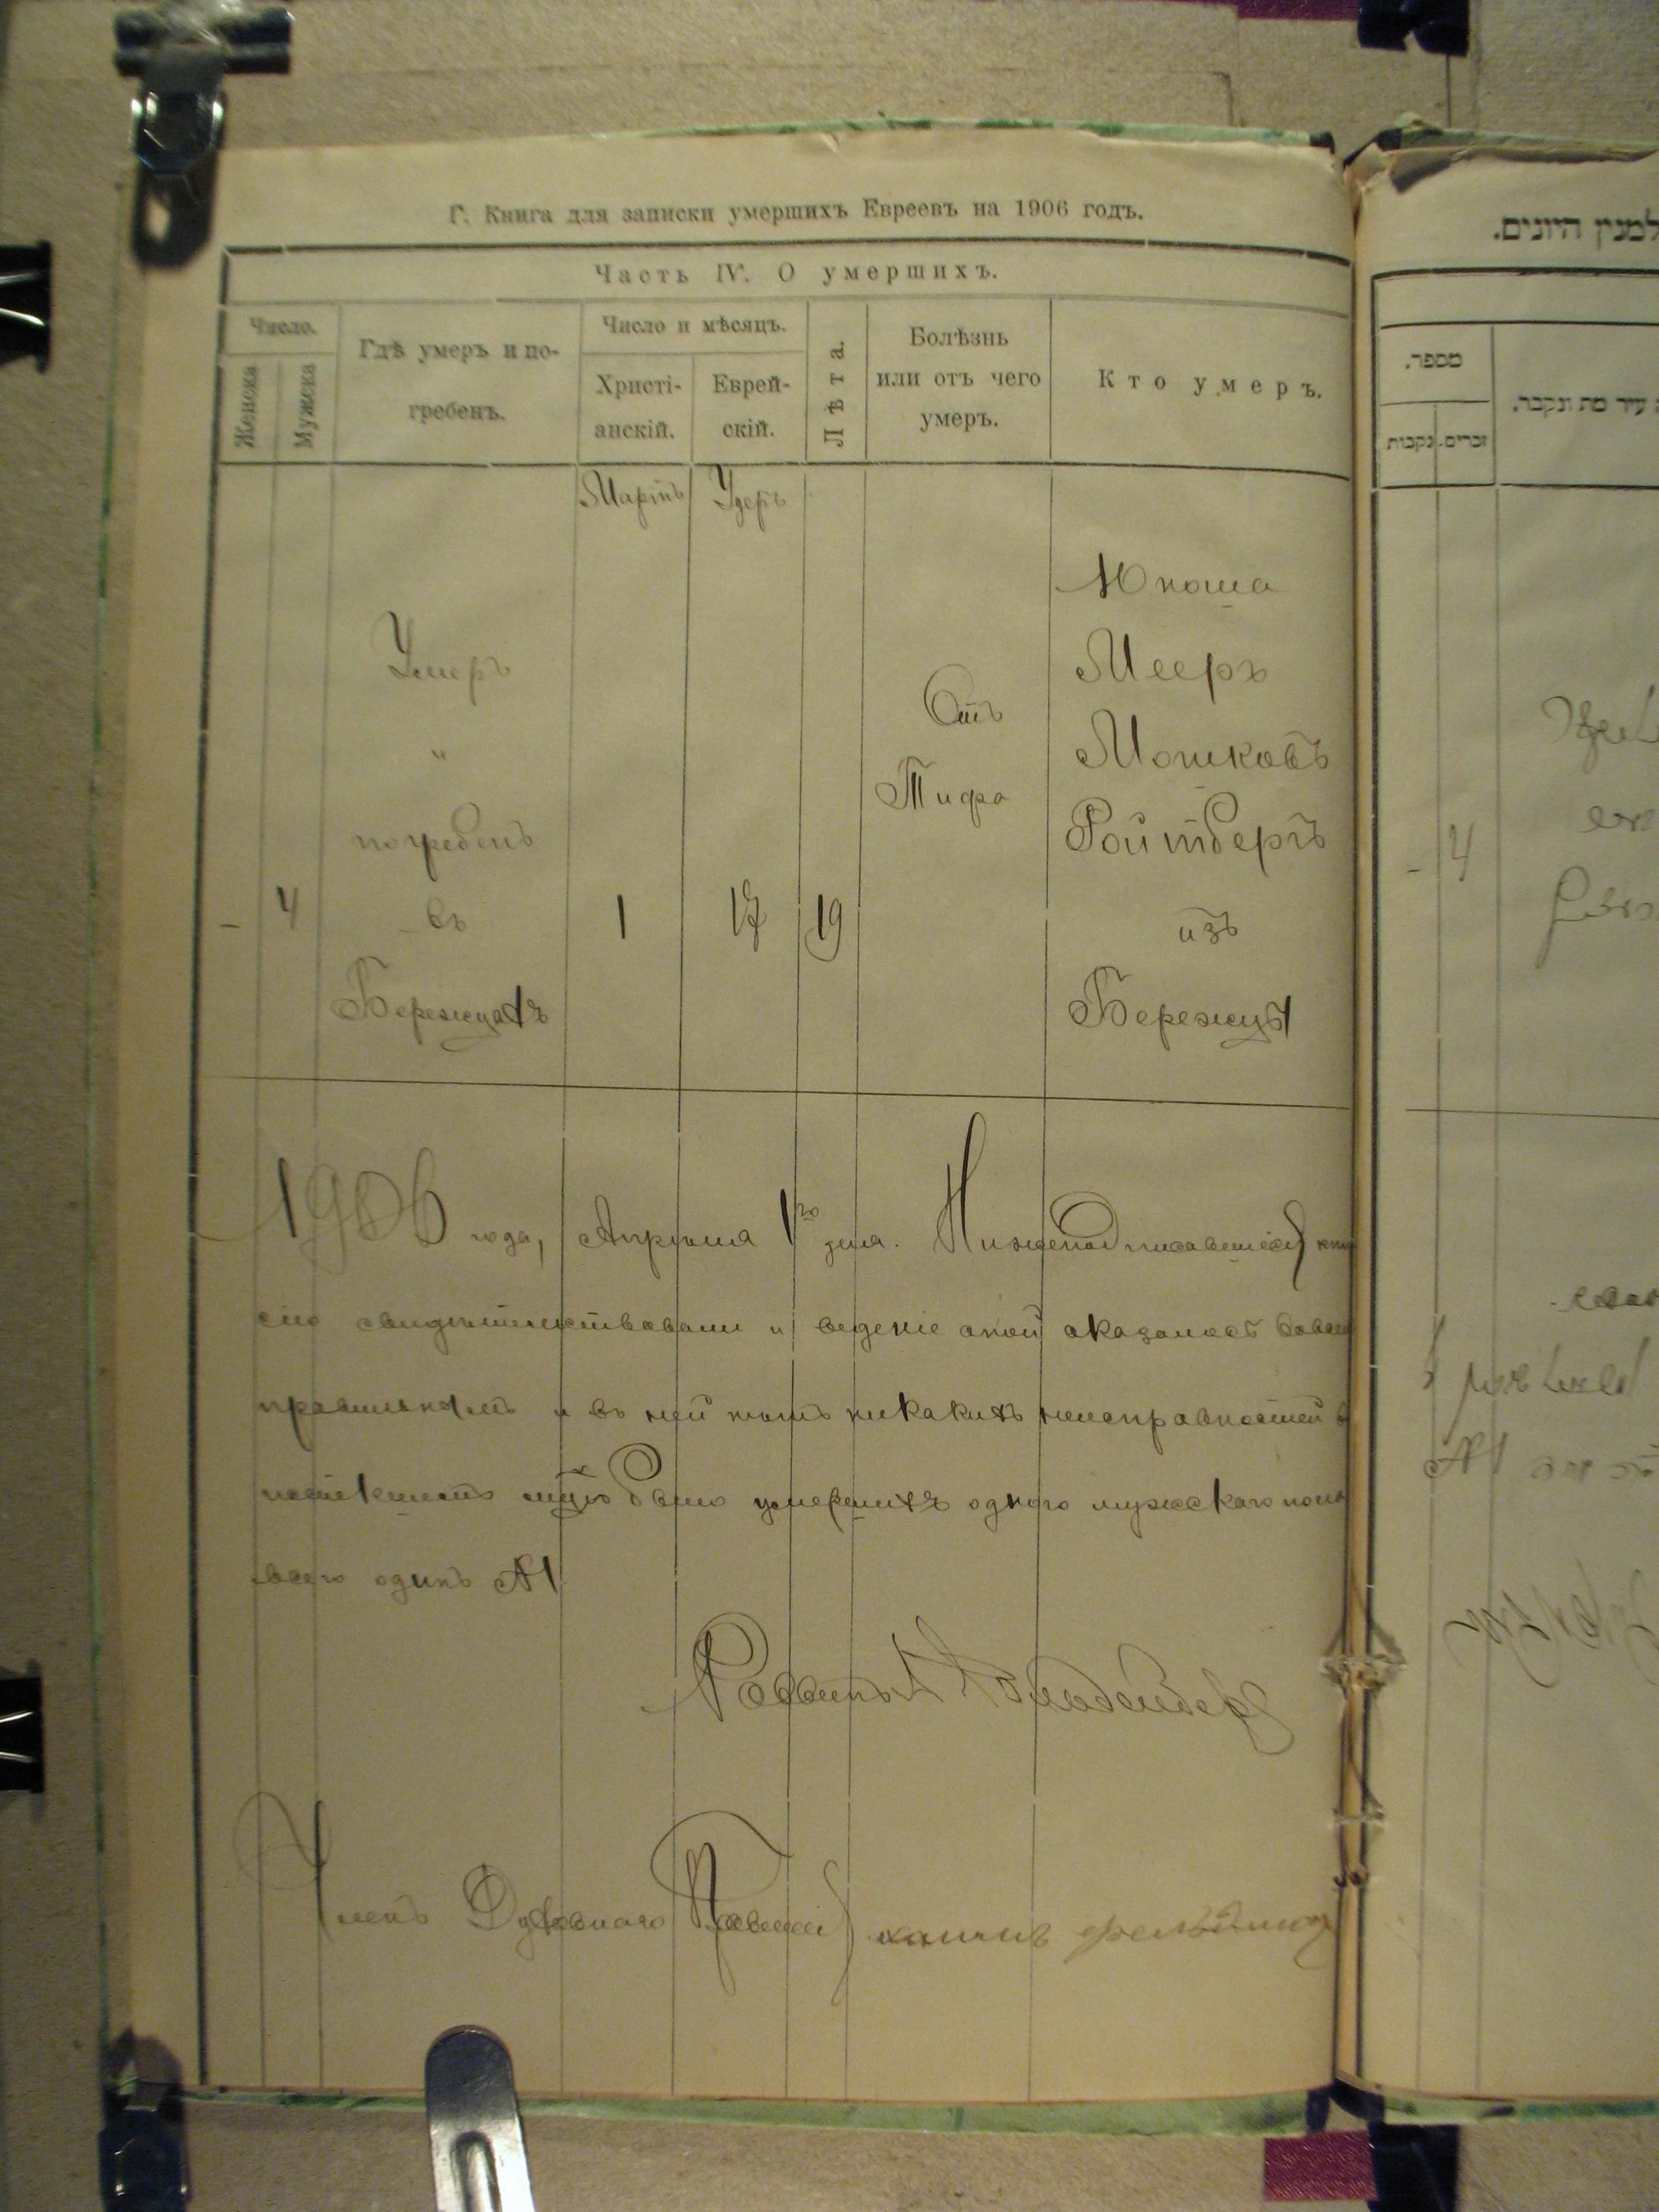 Г. Книга для записки умершихъ Евреевъ на 1906 годъ.
Часть IV. О умершихъ.
Число.
Женска
Мужска
Гдѣ умеръ и по-
гребенъ.
Число и мѣсяцъ.
Христі-
анскій.
Еврей-
скій.
Лѣта.
Болѣзнь
или отъ чего
умеръ.
Кто умеръ.
Мартъ
Удеръ
–
4
Умеръ
"
погребенъ
въ
Бережцахъ
1
17
19
Отъ
Тифа
Юноша
Мееръ
Мошковъ
Ройтбергъ
изъ
Бережцы
1906 года, Апрѣля 1го дня. Нижеподписавшіеся
сію свидѣтельствовали и веденіе оной оказалось
правильнымъ и въ ней нѣтъ никакихъ неисправностей
истекшемъ м-цѣ было умершихъ одного мужскаго пола
всего одинъ №1
Раввинъ
Членъ Духовнаго Правленія
למנין היונים.
מספר.
נקבות
זכרים.
עיר מת ונקבר.
–
4